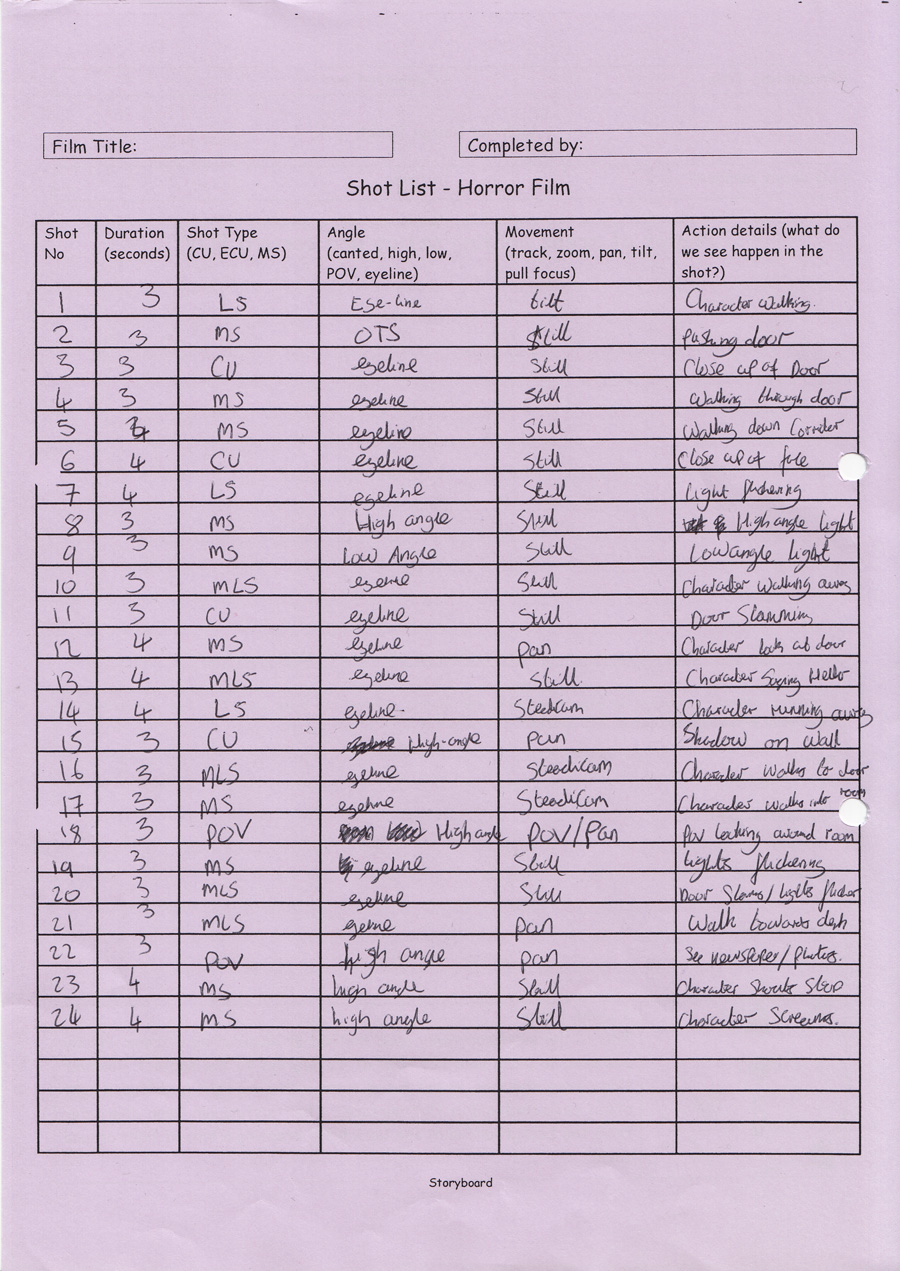 Film Title:
Completed by:
Shot List - Horror Film
Shot No | Duration (seconds) | Shot Type (CU, ECU, MS) | Angle (canted, high, low, POV, eyeline) | Movement (track, zoom, pan, tilt, pull focus) | Action details (what do we see happen in the shot?)
1 3 LS Eye-line tilt Character Walking.
2 3 MS OTS Still pushing door
3 3 CU eyeline Still Close up of Door
4 3 MS eyeline Still Walking through door
5 MS eyeline Still Walking down Corridor
6 4 CU eyeline Still Close up of
7 4 LS eyeline Still Light flickering
8 3 MS High angle Still High angle light
9 3 MS Low Angle Still Low angle light
10 3 MLS eyeline Still Character walking away
11 3 CU eyeline Still Door Slamming
12 4 MS eyeline pan Character looks at door
13 4 MLS eyeline Still. Character Saying Hello
14 4 LS eyeline- Steadicam Character running away
15 3 CU High-angle pan Shadow on wall
16 3 MLS eyeline Steadicam Character walks to door
17 3 MS eyeline Steadicam Character walks into room
18 3 POV High angle POV/Pan POV looking around room
19 3 MS eyeline Still lights flickering
20 3 MLS eyeline Still Door Slams/lights flicker
21 3 MLS eyeline pan Walk towards desk
22 3 POV high angle pan See newspaper/photos.
23 4 MS high angle Still Character Shouts Stop
24 4 MS high angle Still Character Screams.
Storyboard